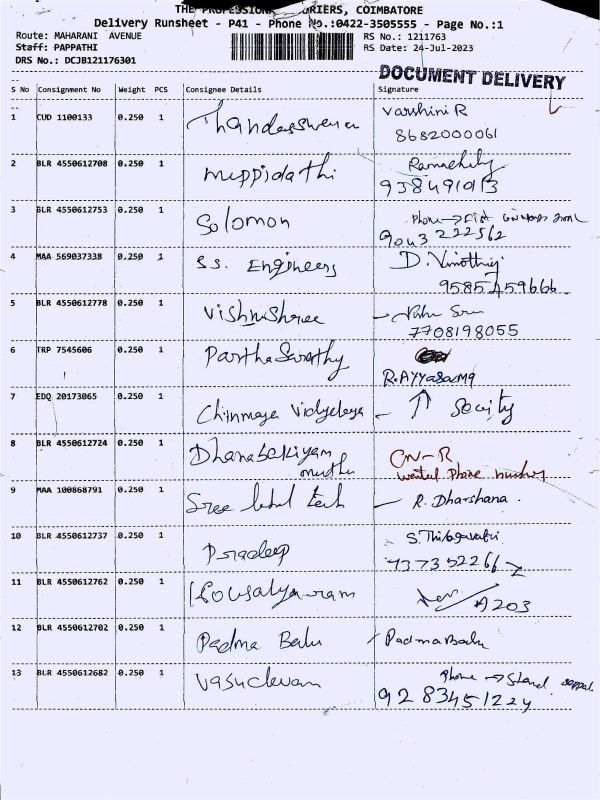 THE PROFESSIONAL COURIERS, COIMBATORE
Delivery Runsheet - P41 - Phone No.:0422-3505555 - Page No.:1
Route: MAHARANI AVENUE RS No.: 1211763
Staff: PAPPATHI RS Date: 24-Jul-2023
DRS No.: DCJB121176301
DOCUMENT DELIVERY
S No Consignment No Weight PCS Consignee Details Signature
1 CUD 1100133 0.250 1 Varshini R
8682000061
2 BLR 4550612708 0.250 1 muppidathi
9384910113
3 BLR 4550612753 0.250 1 Solomon Phone →
9043 222562
4 MAA 569037338 0.250 1 S.S. Engineers D. Vinothiy
9585459666
5 BLR 4550612778 0.250 1 Vishnushree
7708198055
6 TRP 7545606 0.250 1 Partha Sarathy
R.Ayyasamy
7 EDQ 20173065 0.250 1 Chinmaya Vidyalaya - ↑ Secity
8 BLR 4550612724 0.250 1 Dhanabakiyam CN-R
muthu phone
9 MAA 100868791 0.250 1 Sree - R. Dharshana.
10 BLR 4550612737 0.250 1 Pradeep
737352266
11 BLR 4550612762 0.250 1 Kousalyaram A203
12 BLR 4550612702 0.250 1 Padma Balu Padma Balu
13 BLR 4550612682 0.250 1 Vasudevan Phone →
9283451224